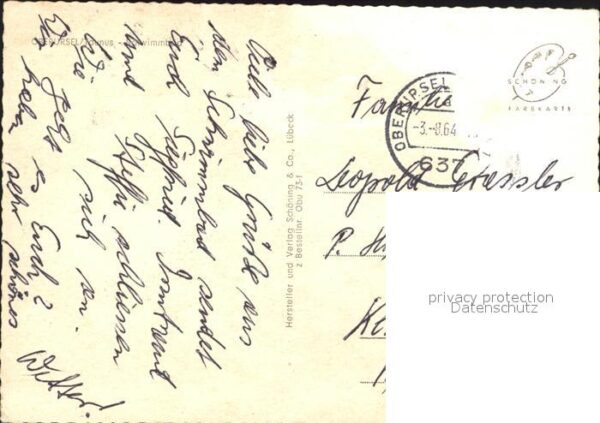 OBERURSEL/Taunus - Schwimmbad
Viele liebe Grüße aus
dem Schwimmbad sendet
Euch Siegfried. Irmtraut
und Steffi schliessen
sich an.
Wie geht es Euch?
Wir haben sehr schönes
Wetter!
Hersteller und Verlag Schöning & Co., Lübeck
z Bestellnr. Obu 73-1
SCHÖNING
FARBKARTE
OBERURSEL
-3.-8.64
637
Familie
Leopold
P.
privacy protection
Datenschutz